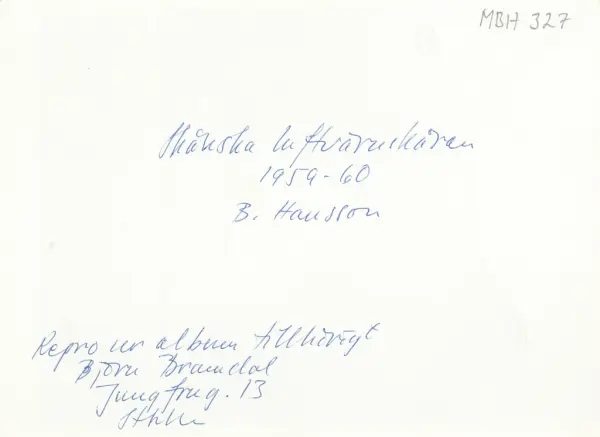 MBH 327
Skånska luftvärnskåren
1959-60
B. Hansson
Repro ur album tillhörigt
Björn Bramdal
Jungfrug. 13
Sthlm